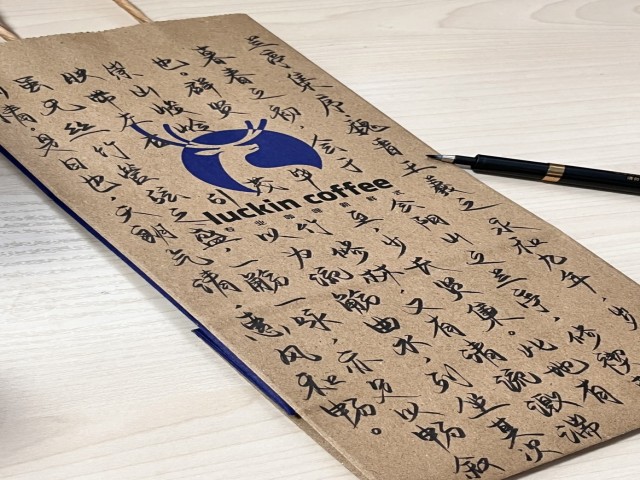 兰亭集序·魏晋王羲之 永和九年，岁
暮春之初，会于会阴山之兰亭，修禊
也。群贤毕至，少长咸集。此地有
崇山峻岭，茂林修竹，又有清流激
映带左右，引以为流觞曲水，列坐其次
虽无丝竹管弦之盛，一觞一咏，亦足以畅叙
情。是日也，天朗气清，惠风和畅。
luckin coffee